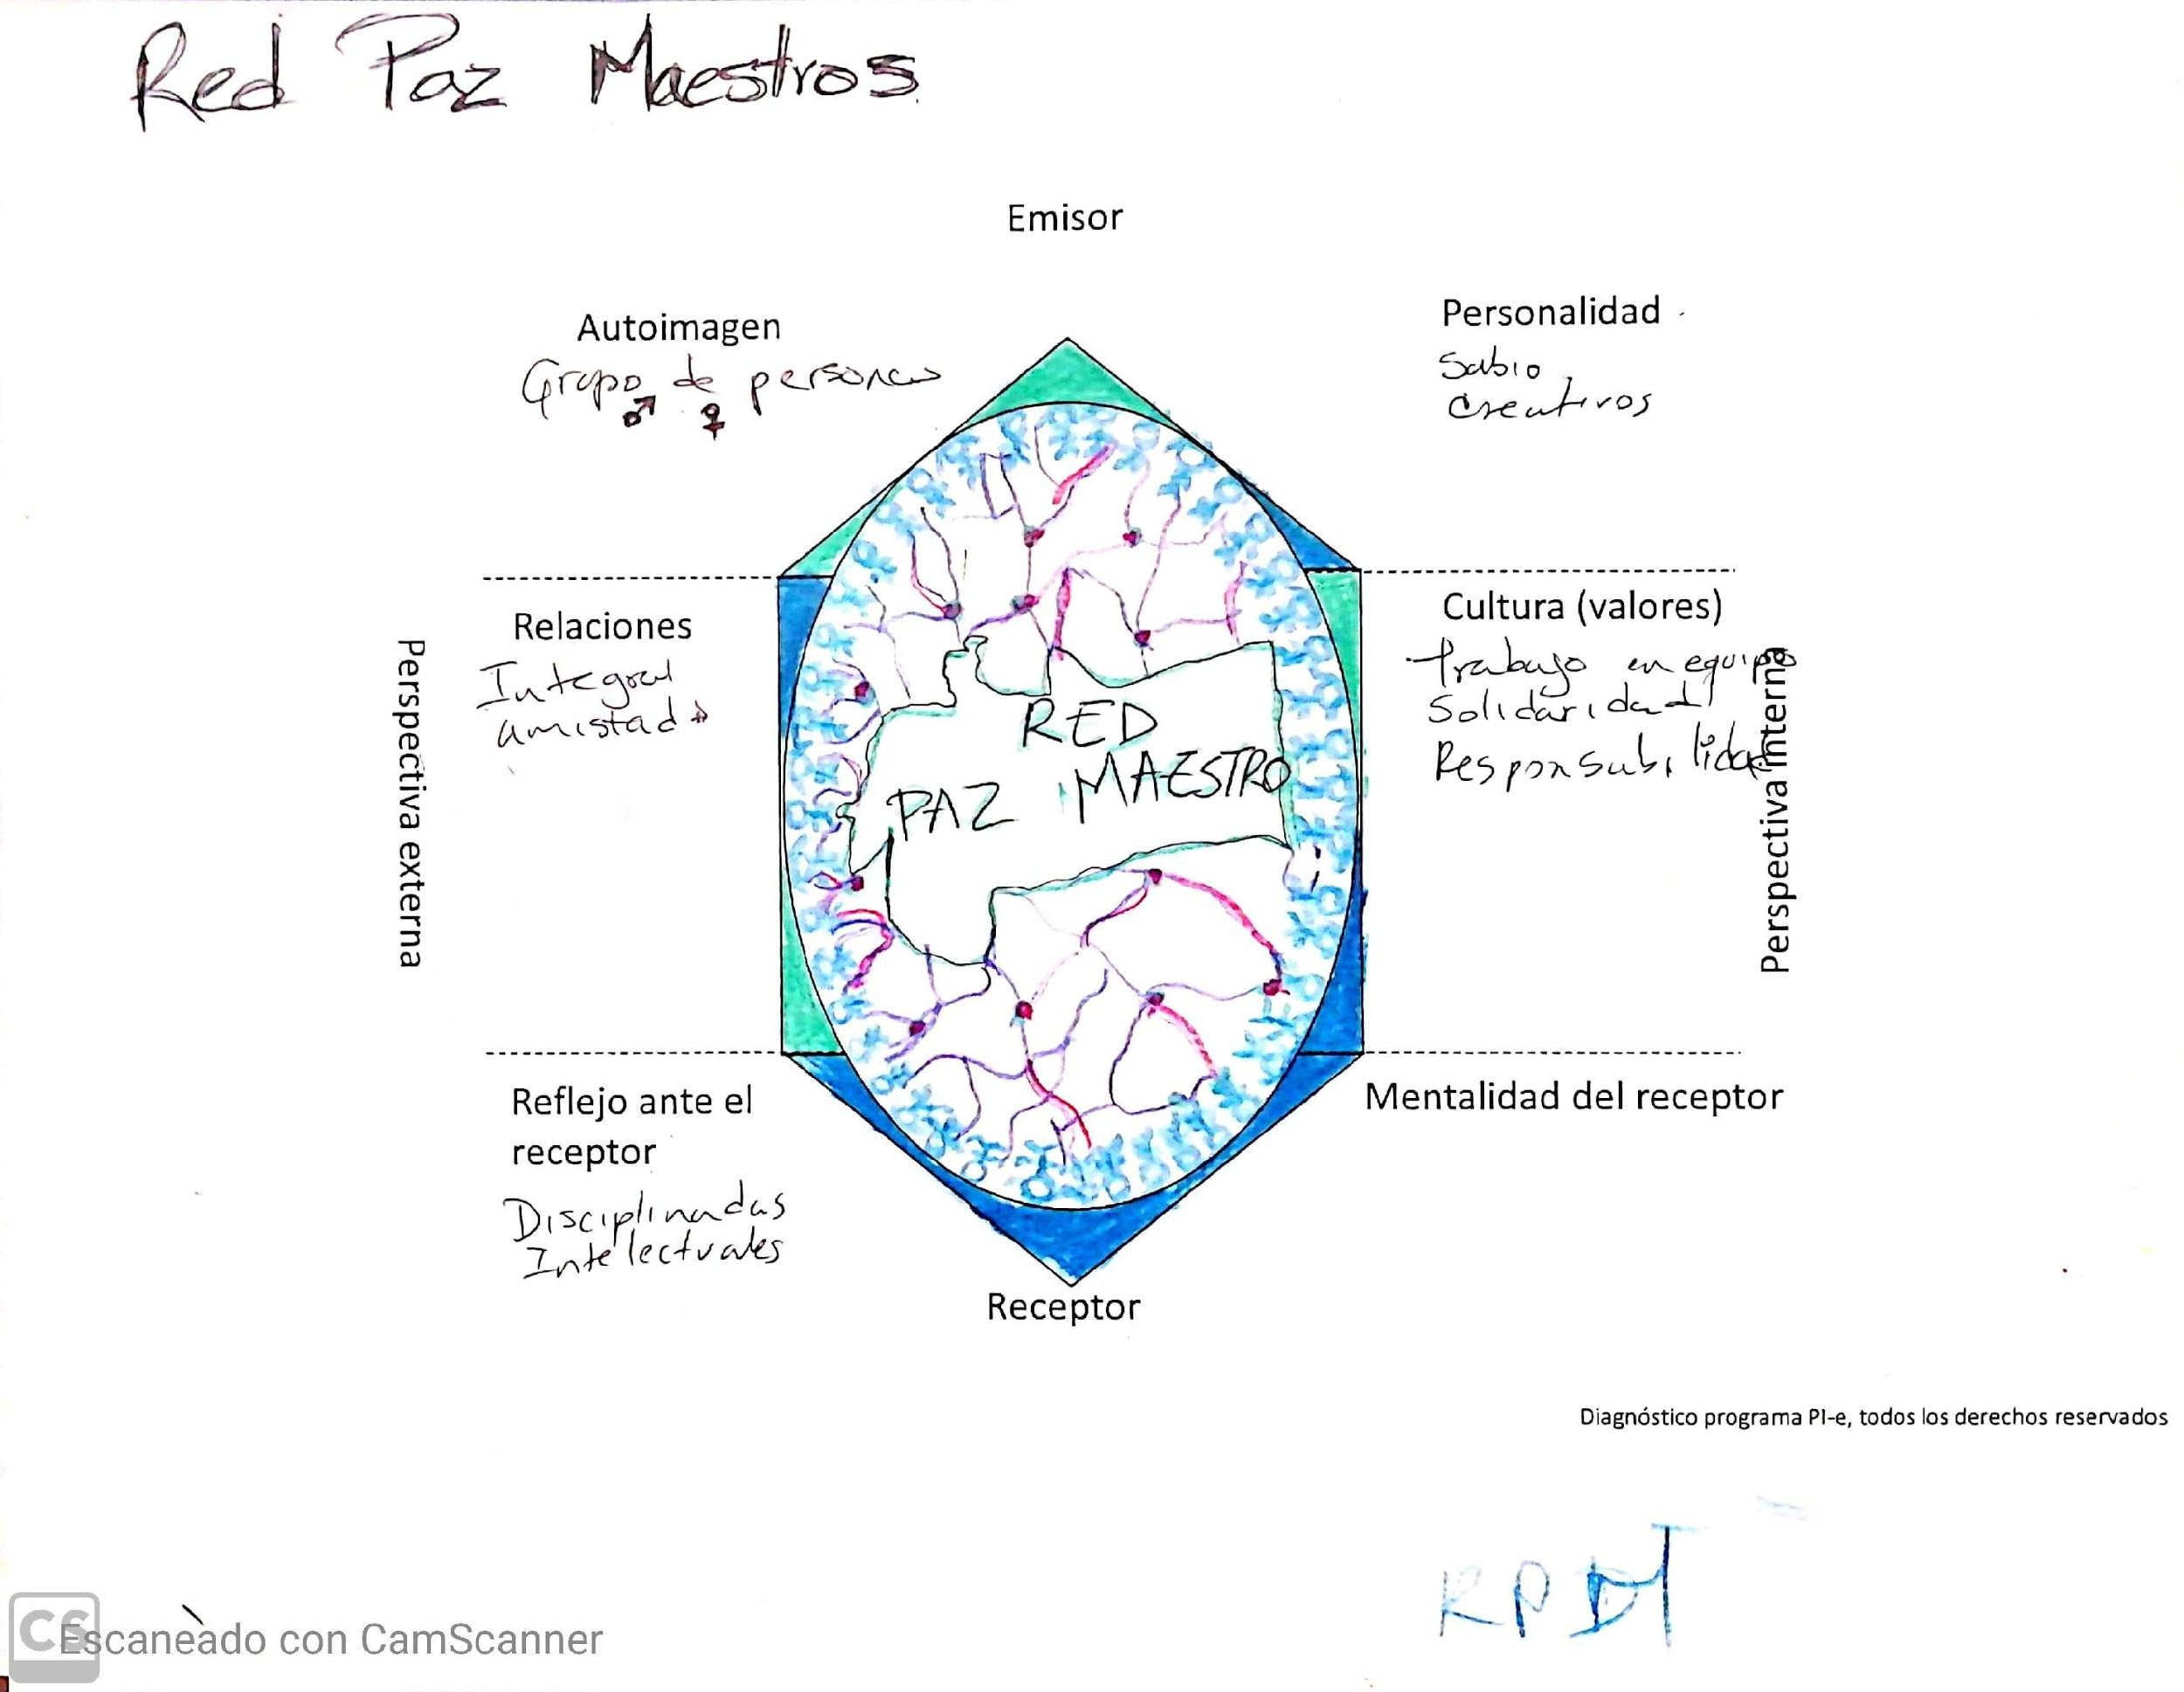 Red Paz Maestros
Emisor
Autoimagen
Grupo de personas
♂ ♀
Personalidad
Sabio
Creativos
Relaciones
Integral
amistad
Cultura (valores)
trabajo en equipo
Solidaridad
Responsabilidad
Perspectiva externa
Perspectiva interna
RED
PAZ MAESTRO
Reflejo ante el
receptor
Disciplinadas
Intelectuales
Mentalidad del receptor
Receptor
Diagnóstico programa PI-e, todos los derechos reservados
CS
Escaneado con CamScanner